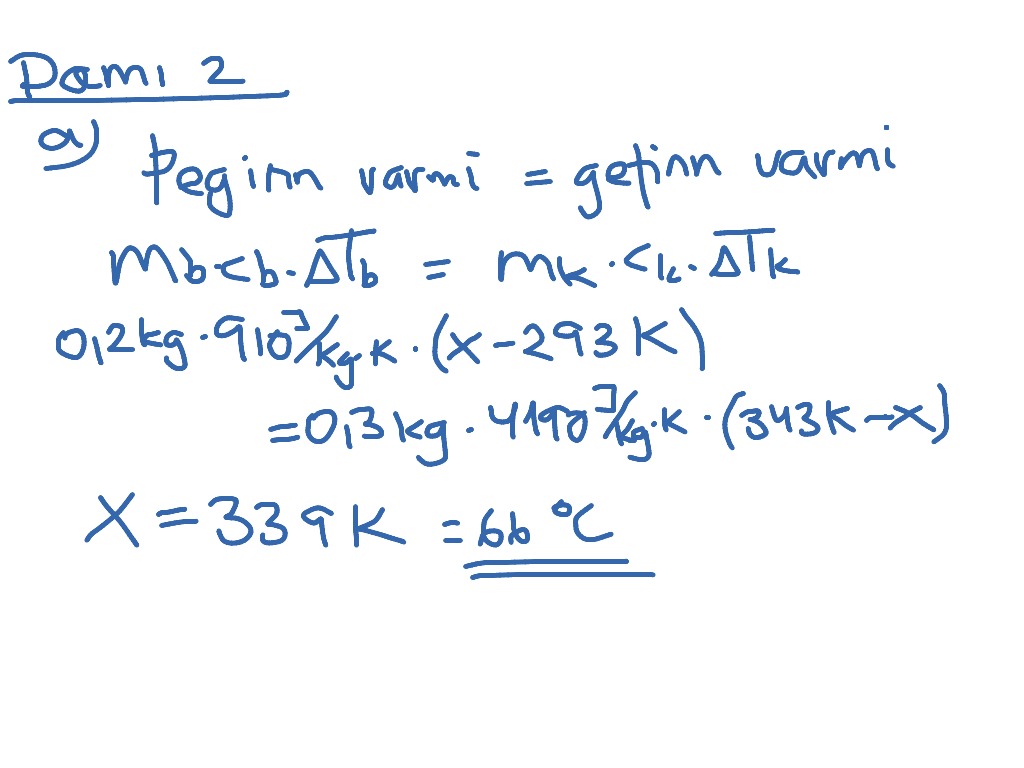 Dæmi 2
a)
Þeginn varmi = gefinn varmi
mb cb · ΔTb = mk · ck · ΔTk
0,2 kg · 910 J/kg·K · (x - 293 K)
= 0,3 kg · 4190 J/kg·K · (343K - x)
X = 339 K = 66 °C